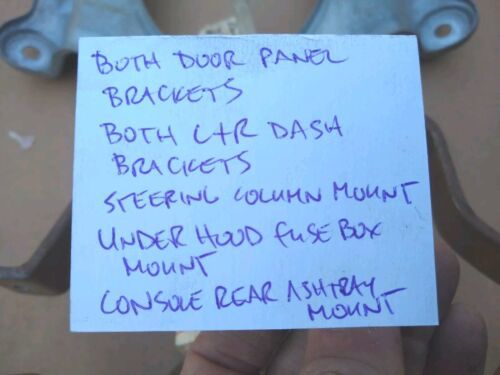 BOTH DOOR PANEL
BRACKETS
BOTH L+R DASH
BRACKETS
STEERING COLUMN MOUNT
UNDER HOOD FUSE BOX
MOUNT
CONSOLE REAR ASHTRAY
MOUNT